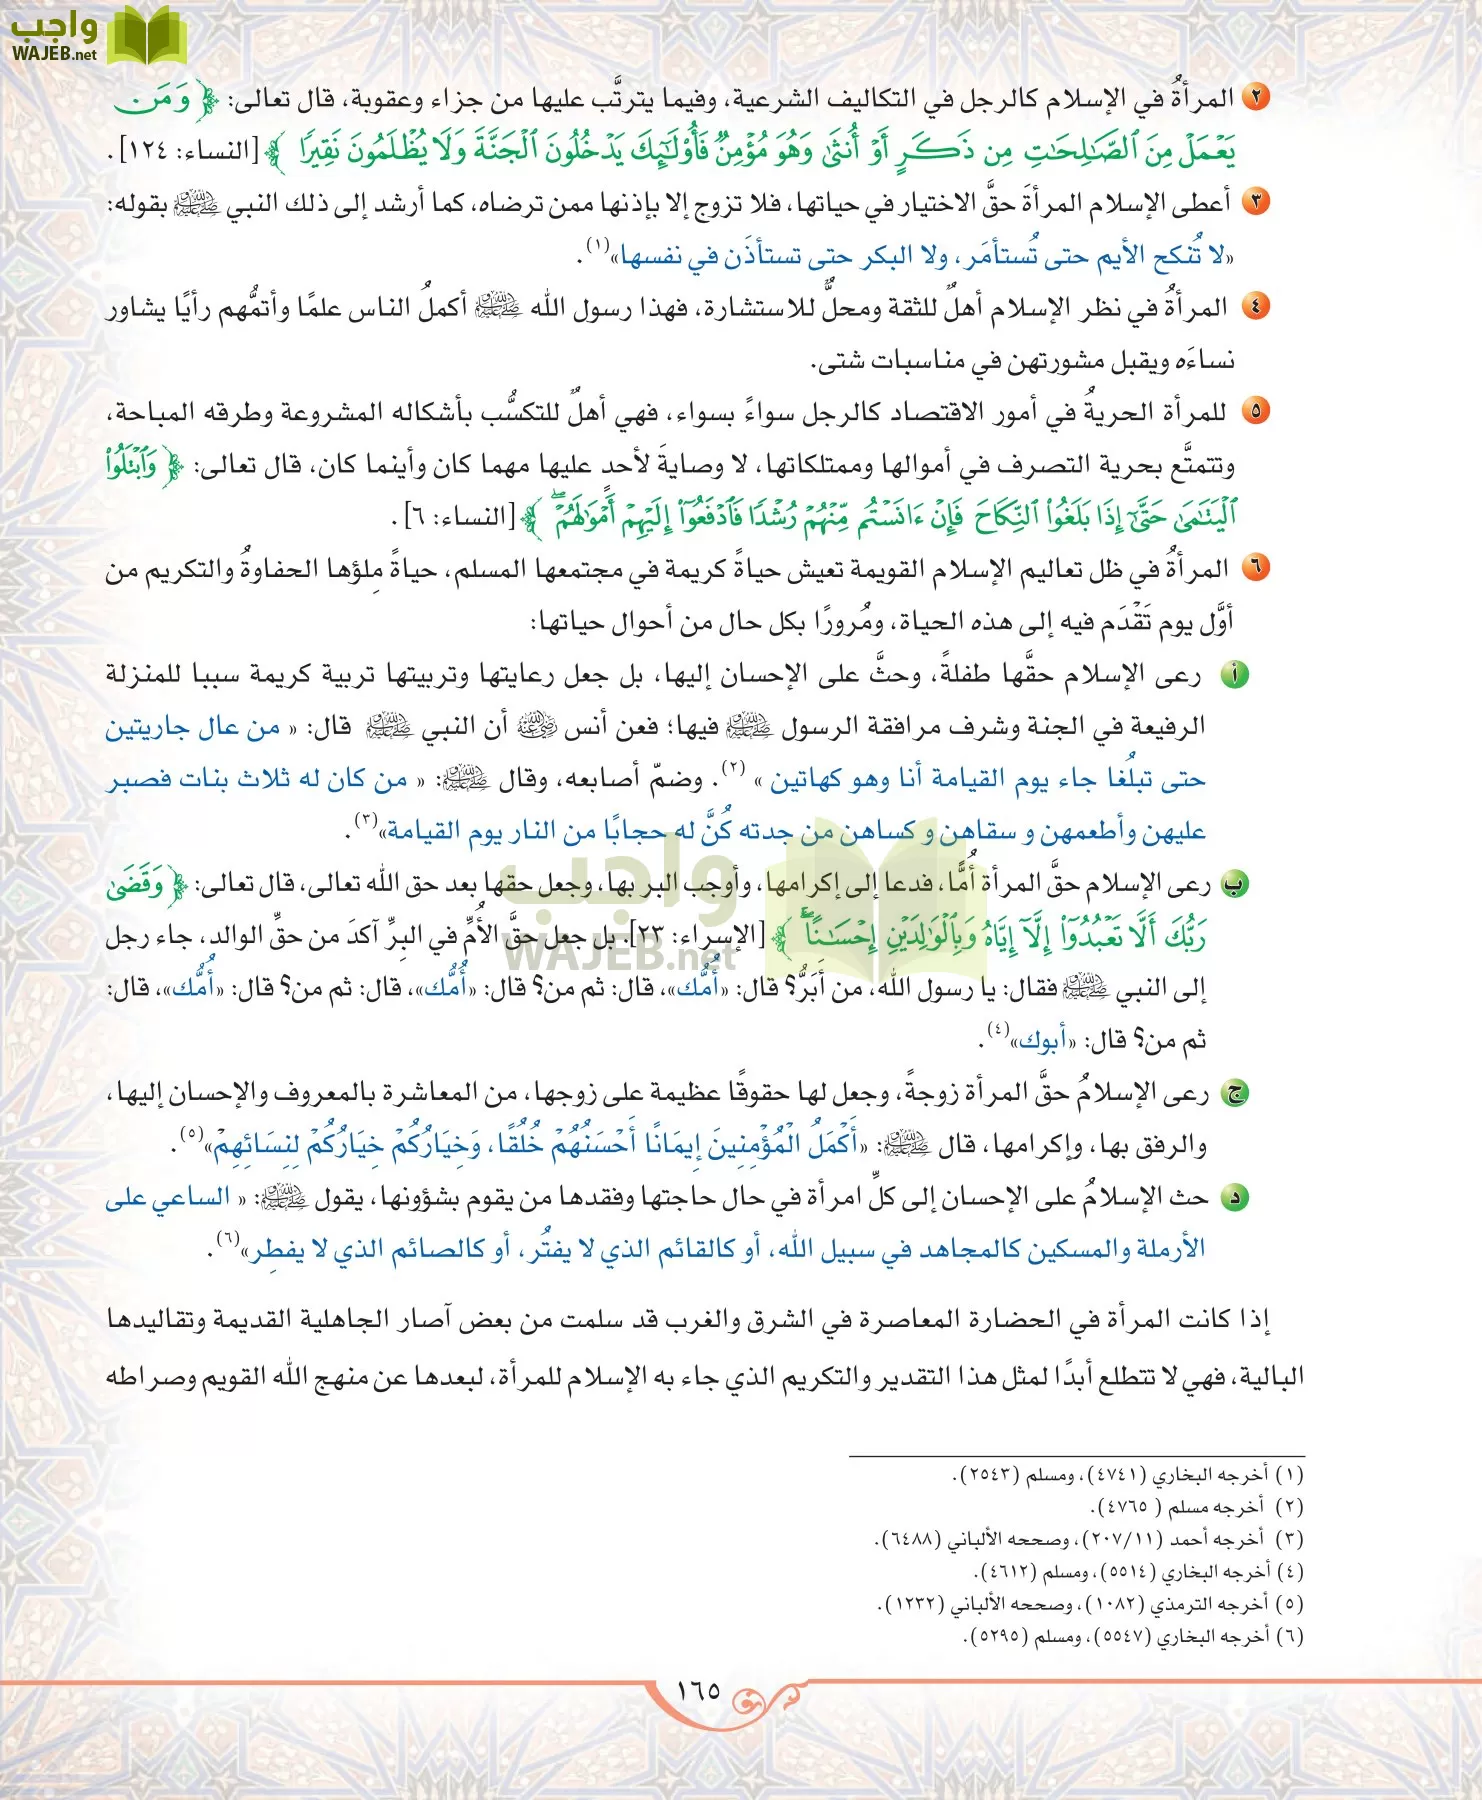 واجب
WAJEB.net
٢ المرأةُ في الإسلام كالرجل في التكاليف الشرعية، وفيما يترتَّب عليها من جزاء وعقوبة، قال تعالى: ﴿ وَمَن
يَعْمَلْ مِنَ ٱلصَّٰلِحَٰتِ مِن ذَكَرٍ أَوْ أُنثَىٰ وَهُوَ مُؤْمِنٌ فَأُو۟لَٰٓئِكَ يَدْخُلُونَ ٱلْجَنَّةَ وَلَا يُظْلَمُونَ نَقِيرًا ﴾ [النساء: ١٢٤] .
٣ أعطى الإسلام المرأةَ حقَّ الاختيار في حياتها، فلا تزوج إلا بإذنها ممن ترضاه، كما أرشد إلى ذلك النبي ﷺ بقوله:
«لا تُنكح الأيم حتى تُستأمَر، ولا البكر حتى تستأذَن في نفسها»(١).
٤ المرأةُ في نظر الإسلام أهلٌ للثقة ومحلٌّ للاستشارة، فهذا رسول الله ﷺ أكملُ الناس علمًا وأتمُّهم رأيًا يشاور
نساءَه ويقبل مشورتهن في مناسبات شتى.
٥ للمرأة الحريةُ في أمور الاقتصاد كالرجل سواءً بسواء، فهي أهلٌ للتكسُّب بأشكاله المشروعة وطرقه المباحة،
وتتمتَّع بحرية التصرف في أموالها وممتلكاتها، لا وصايةَ لأحدٍ عليها مهما كان وأينما كان، قال تعالى: ﴿ وَٱبْتَلُوا۟
ٱلْيَتَٰمَىٰ حَتَّىٰٓ إِذَا بَلَغُوا۟ ٱلنِّكَاحَ فَإِنْ ءَانَسْتُم مِّنْهُمْ رُشْدًا فَٱدْفَعُوٓا۟ إِلَيْهِمْ أَمْوَٰلَهُمْ ۖ ﴾ [النساء: ٦] .
٦ المرأةُ في ظل تعاليم الإسلام القويمة تعيش حياةً كريمة في مجتمعها المسلم، حياةً مِلؤها الحفاوةُ والتكريم من
أوَّل يوم تَقْدَم فيه إلى هذه الحياة، ومُرورًا بكل حال من أحوال حياتها:
أ رعى الإسلام حقَّها طفلةً، وحثَّ على الإحسان إليها، بل جعل رعايتها وتربيتها تربية كريمة سببا للمنزلة
الرفيعة في الجنة وشرف مرافقة الرسول ﷺ فيها؛ فعن أنس رضي الله عنه أن النبي ﷺ قال: « من عال جاريتين
حتى تبلُغا جاء يوم القيامة أنا وهو كهاتين »(٢). وضمّ أصابعه، وقال ﷺ: « من كان له ثلاث بنات فصبر
عليهن وأطعمهن و سقاهن و كساهن من جدته كُنَّ له حجابًا من النار يوم القيامة»(٣).
ب رعى الإسلام حقَّ المرأة أُمًّا، فدعا إلى إكرامها، وأوجب البر بها، وجعل حقها بعد حق الله تعالى، قال تعالى: ﴿ وَقَضَىٰ
رَبُّكَ أَلَّا تَعْبُدُوٓا۟ إِلَّآ إِيَّاهُ وَبِٱلْوَٰلِدَيْنِ إِحْسَٰنًا ۚ ﴾ [الإسراء: ٢٣]. بل جعل حقَّ الأُمِّ في البِرِّ آكدَ من حقِّ الوالد، جاء رجل
إلى النبي ﷺ فقال: يا رسول الله، من أَبَرُّ؟ قال: «أُمُّك»، قال: ثم من؟ قال: «أُمُّك»، قال: ثم من؟ قال: «أُمُّك»، قال:
ثم من؟ قال: «أبوك»(٤).
ج رعى الإسلامُ حقَّ المرأة زوجةً، وجعل لها حقوقًا عظيمة على زوجها، من المعاشرة بالمعروف والإحسان إليها،
والرفق بها، وإكرامها، قال ﷺ: «أَكْمَلُ الْمُؤْمِنِينَ إِيمَانًا أَحْسَنُهُمْ خُلُقًا، وَخِيَارُكُمْ خِيَارُكُمْ لِنِسَائِهِمْ»(٥).
د حث الإسلامُ على الإحسان إلى كلِّ امرأة في حال حاجتها وفقدها من يقوم بشؤونها، يقول ﷺ: « الساعي على
الأرملة والمسكين كالمجاهد في سبيل الله، أو كالقائم الذي لا يفتُر، أو كالصائم الذي لا يفطِر»(٦).
إذا كانت المرأة في الحضارة المعاصرة في الشرق والغرب قد سلمت من بعض آصار الجاهلية القديمة وتقاليدها
البالية، فهي لا تتطلع أبدًا لمثل هذا التقدير والتكريم الذي جاء به الإسلام للمرأة، لبعدها عن منهج الله القويم وصراطه
(١) أخرجه البخاري (٤٧٤١)، ومسلم (٢٥٤٣).
(٢) أخرجه مسلم ( ٤٧٦٥).
(٣) أخرجه أحمد (٢٠٧/١١)، وصححه الألباني (٦٤٨٨).
(٤) أخرجه البخاري (٥٥١٤)، ومسلم (٤٦١٢).
(٥) أخرجه الترمذي (١٠٨٢)، وصححه الألباني (١٢٣٢).
(٦) أخرجه البخاري (٥٥٤٧)، ومسلم (٥٢٩٥).
١٦٥